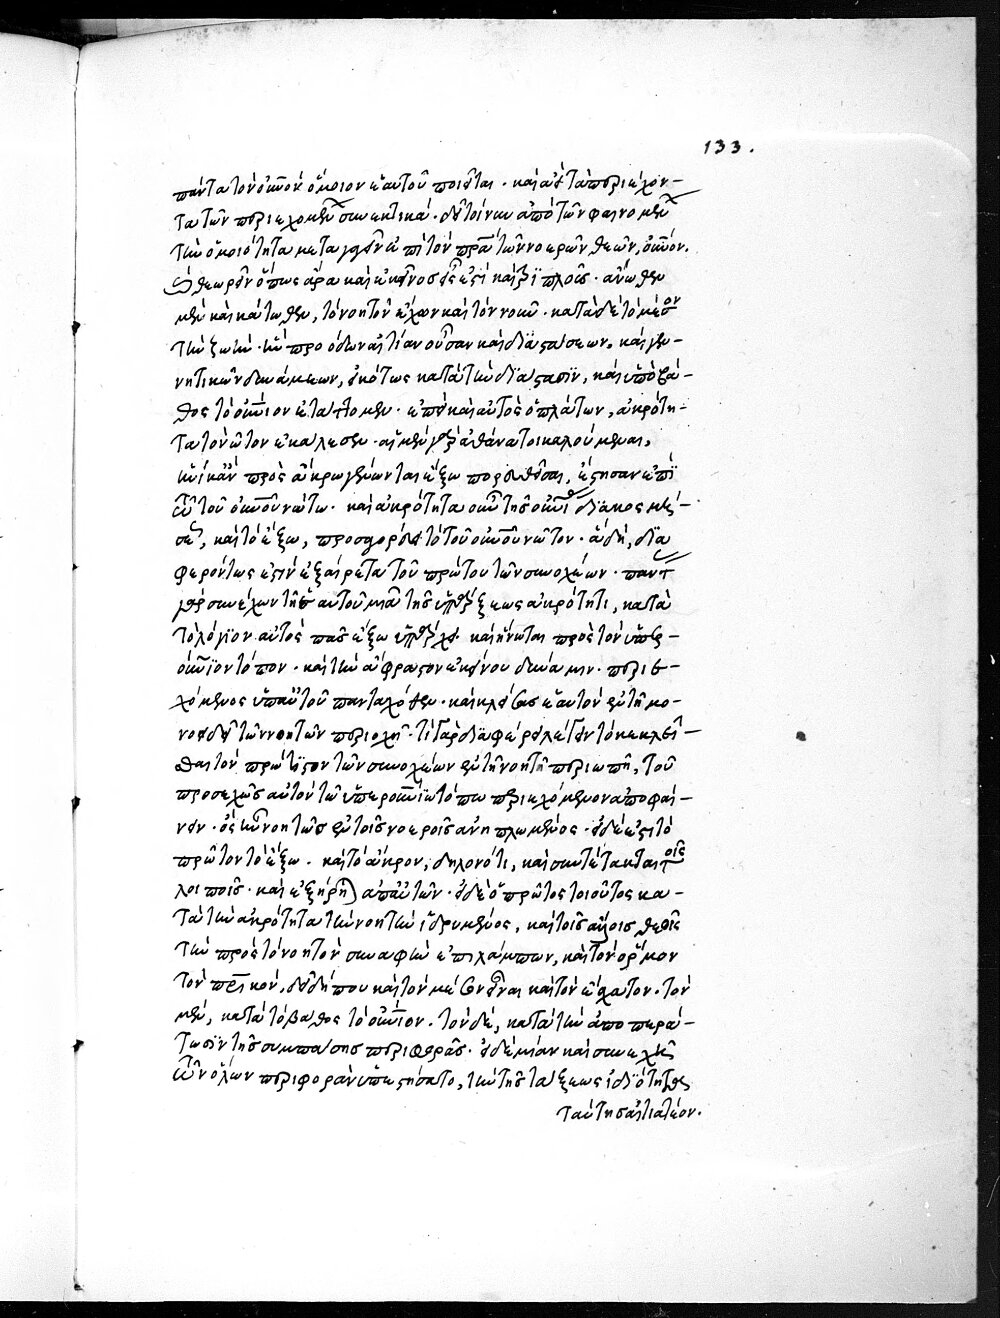 133.
πάντα τὸν οὐρανὸν ὅμοιον ἑαυτοῦ ποιεῖται · καὶ ἀεὶ τὰ περιέχον-
τα τῶν περιεχομένων συνεκτικά · δεῖ τοίνυν ἀπὸ τῶν φαινομένων
τὴν ὁμοιότητα μεταγαγεῖν ἐπὶ τὸν πρὸ τῶν νοερῶν θεῶν, οὐρανόν.
θεωρεῖν ὅπως ἄρα καὶ ἐκεῖνος εἷς ἐστὶ καὶ τριπλοῦς · ἄνωθεν
μὲν καὶ κάτωθεν, τὸ νοητὸν ἔχων καὶ τὸν νοῦν · κατὰ δὲ τὸ μέσον
τὴν ζωὴν · τὴν προόδων αἰτίαν οὖσαν καὶ διαστάσεων. καὶ γεν-
νητικῶν δυνάμεων, εἰκότως κατὰ τὴν διάστασιν, καὶ ὑπὸ βά-
θος τὸ οὐράνιον ἐτάττομεν · ἐπεὶ καὶ αὐτὸς ὁ πλάτων, ἀκρότη-
τα τὸ νῶτον ἐκάλεσεν · αἱ μὲν γὰρ ἀθάνατοι καλούμεναι,
ἡνίκ' ἂν πρὸς ἄκρῳ γένωνται ἔξω πορευθεῖσαι, ἔστησαν ἐπὶ
τῷ τοῦ οὐρανοῦ νώτῳ · καὶ ἀκρότητα οὖν τῆς οὐρανί διάκοσμή-
σε, καὶ τὸ ἔξω, προσαγορεύει τὸ τοῦ οὐρανοῦ νῶτον · ἃ δὴ, δια
φερόντως ἐστὶν ἐξαίρετα τοῦ πρώτου τῶν συνοχέων · πάντα
γὰρ συνέχων τῇ ἑαυτοῦ μιᾷ τῆς ὑπάρξεως ἀκρότητι, κατὰ
τὸ λόγιον αὐτὸς πᾶς ἔξω ὑπάρχει · καὶ ἥνωται πρὸς τὸν ὑπερ-
ουράνιον τόπον · καὶ τὴν ἄφραστον ἐκείνου δύναμιν · περιε-
χόμενος ὑπ' αὐτοῦ πανταχόθεν · καὶ κλείσας ἑαυτὸν ἐν τῇ μο-
νοειδεῖ τῶν νοητῶν περιοχῇ · τί γὰρ διαφέρει λέγειν τὸ κεκλεῖ-
σθαι τὸν πρώτιστον τῶν συνοχέων ἐν τῇ νοητῇ περιωπῇ, τοῦ
προσεχῶς αὐτὸν τῷ ὑπερουρανίῳ τόπῳ περιεχόμενον ἀποφαί-
νειν · ὃς ἦν νοητῶς ἐν τοῖς νοεροῖς ἀνηπλωμένος · εἰ δέ ἐστι τὸ
πρῶτον τὸ ἔξω · καὶ τὸ ἄκρον, δηλονότι, καὶ συντέτακται τοῖς
λοιποῖς · καὶ ἐξῄρηται ἀπ' αὐτῶν · εἰ δὲ ὁ πρῶτος τοιοῦτος κα-
τὰ τὴν ἀκρότητα τὴν νοητὴν ἱδρυμένος, καὶ τοῖς ἄλλοις θεοῖς
τὴν πρὸς τὸ νοητὸν συναφὴν ἐπιλάμπων, καὶ τὸν ὅρμον
τὸν πατρικόν, δεῖ δήπου καὶ τὸν μέσον εἶναι καὶ τὸν ἔσχατον · τὸν
μὲν, κατὰ τὸ βάθος τὸ οὐράνιον · τὸν δὲ, κατὰ τὴν ἀποπερά-
τωσιν τῆς συμπάσης περιφορᾶς · εἰ δὲ μίαν καὶ συνεχῆ
τῶν ὅλων περιφορὰν ὑπεστήσατο, τὴν τῆς τάξεως ἰδιότητος
ταύτης αἰτιατέον.